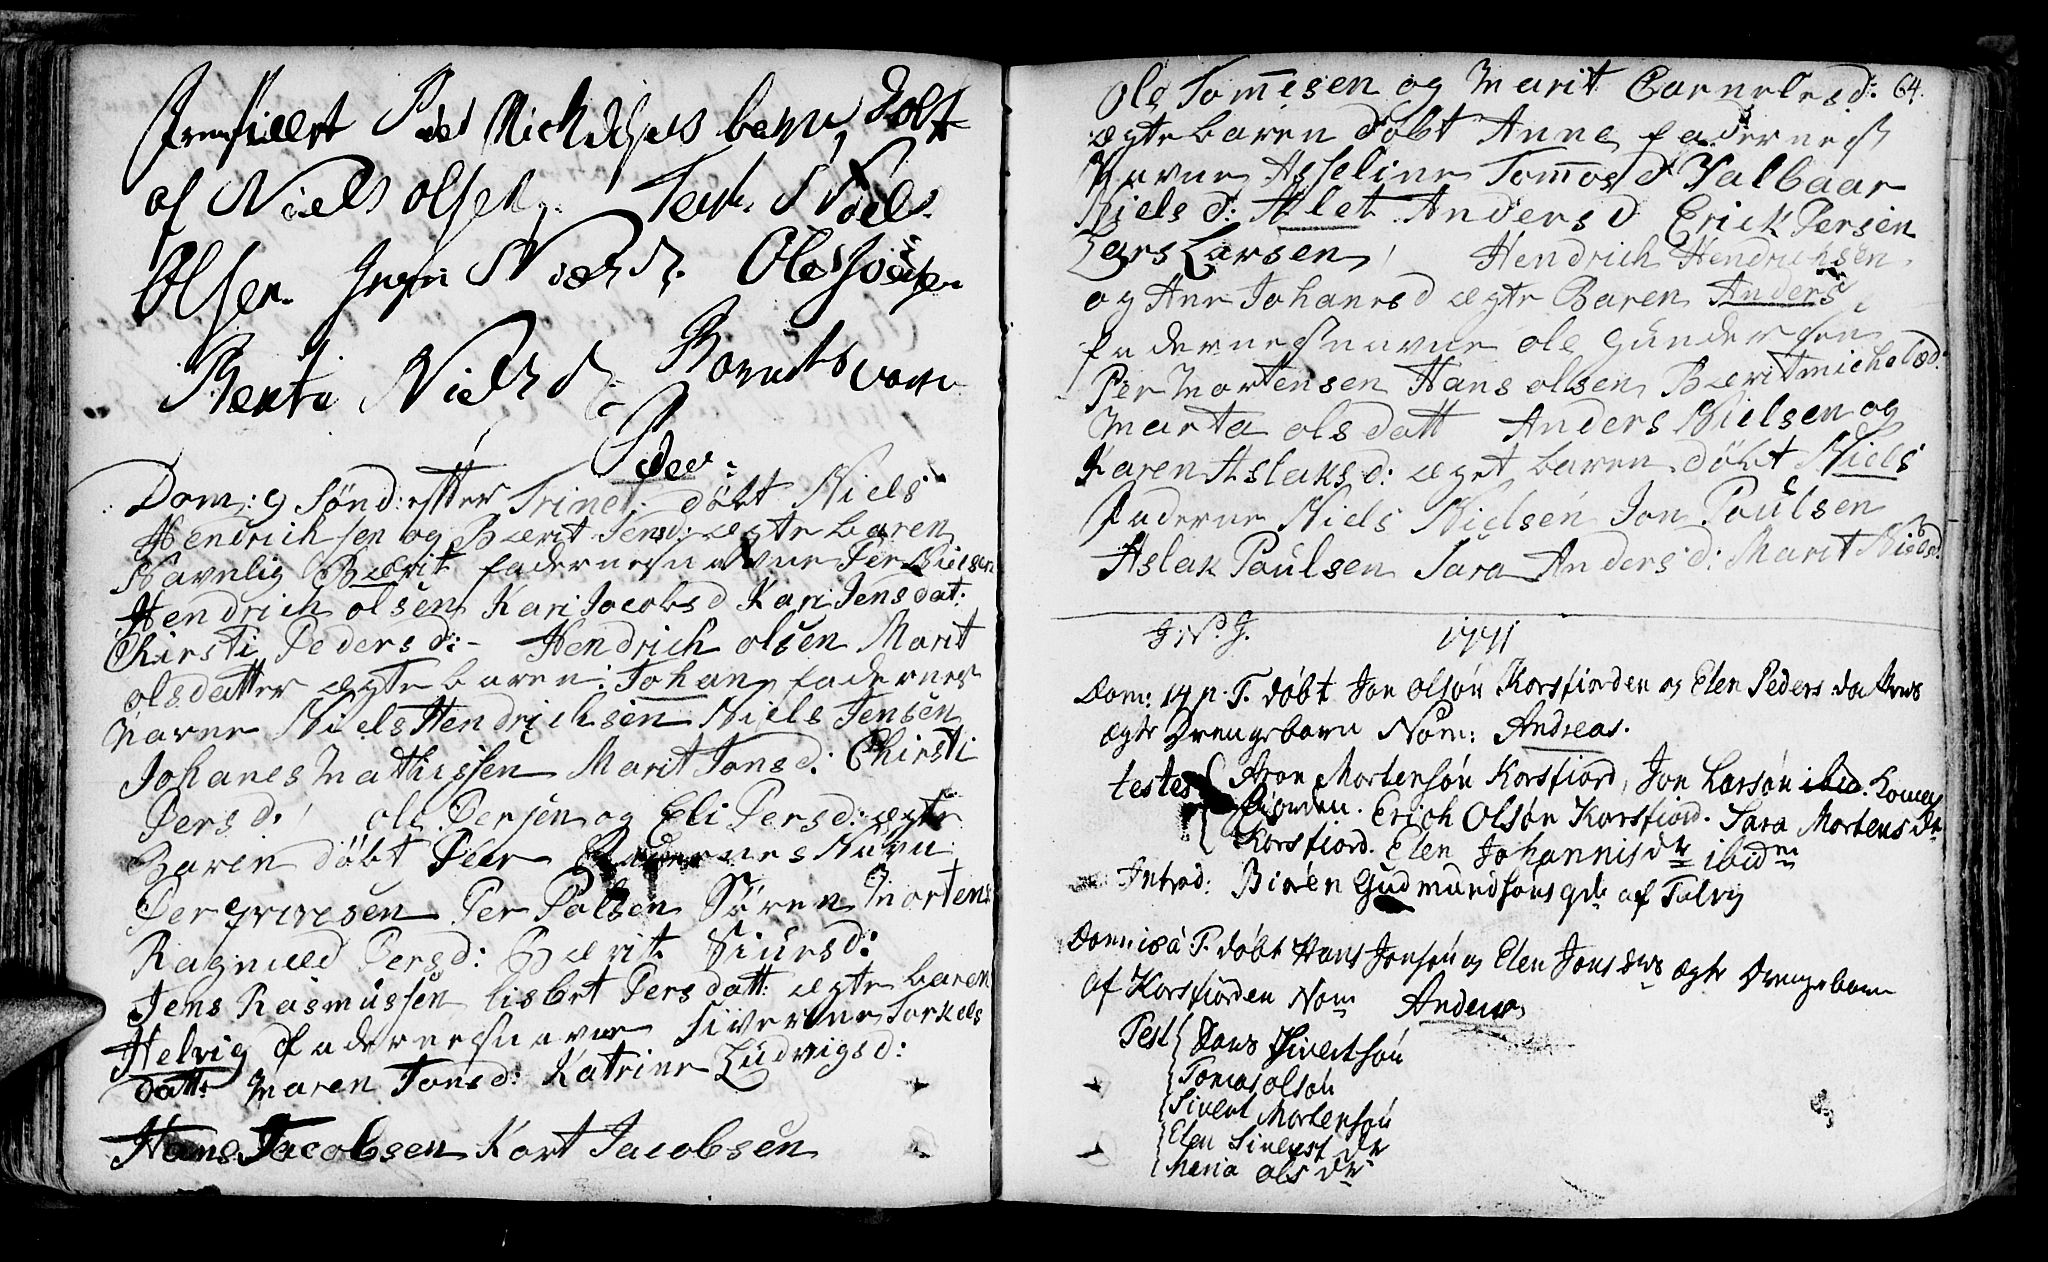 Fremstillert Peder Michelsens barn, Döbt
af Niels olsen. Test. Niels
Olsen. Niels d. Ole
Berita Niels d. Barnets navn
Peder:
Dom: 9 Sönd: efter Trinet: döbt Niels
Hendrichsen og Bærit Jensd: ægte baren
Navnlig Bærit fadernesnavne Per Nielsen
Hendrich olsen Kari Jacobs d Kari Jens dat:
Chirsti Peders d:- Hendrich olsen Marit
olsdatter ægte baren: Johan, fadernes
Navne Niels Hendrichsen Niels Jensen
Johanes Mathiessen Marit Jons d: Chirsti
Pers d: ole Persen og Eli Pers d: ægte
Baren döbt Peer Fadernes Navn
Per Per Polsen Sören Mortens
Ragnild Pers d: Bærit Siurs d:
Jens Rasmussen lisbet Pers datt: ægte baren
Helvig fadernesnavne Siverine Torkels
datt: Maren Jons d: Katrine Ludvigs d:
Hans Jacobsen Kort Jacobsen
Ole Tomesen og Marit Carnelesd: 64.
ægte baren döbt Anne fadernes
Navne Asseline Tommos d Valbaar
Niels d: Alet Anders d Erick Persen
Lars Larsen, Hendrich Hendrichsen
og Ane Johanes d ægte Baren Anders
fadernes navne ole Gundersen
Per Mortensen Hans olsen Bærit michels d:
Marta ols datt Anders Nielsen og
Karen Aslaks d: æget baren döbt Niels
faderne Niels Nielsen Jon Poulsen
Aslak Poulsen Sara Anders d: Marit Niels d:
J. N. J. 1771
Dom: 14 p. T. döbt Jon Olsön Korsfiorden og Elen Peders datters
ægte Drengebarn Nom: Andreas.
testes Aron Mortensön Korsfiord, Jon Larsön ibid.
fiorden. Erich Olsön Korsfiord. Sara Mortens dr
Korsfiord. Elen Johannis dr ibidm
Introd: Biören Gudmundsöns qv. af Talvig
Dom: 18 à T. döbt Hans Jonsön og Elen Jons drs ægte Drengebarn
af Korsfiorden Nom Anders
Test Hans Sivertsön
Tomas olsön
Sivert Mortensön
Elen Sivert dr
Maria ols dr